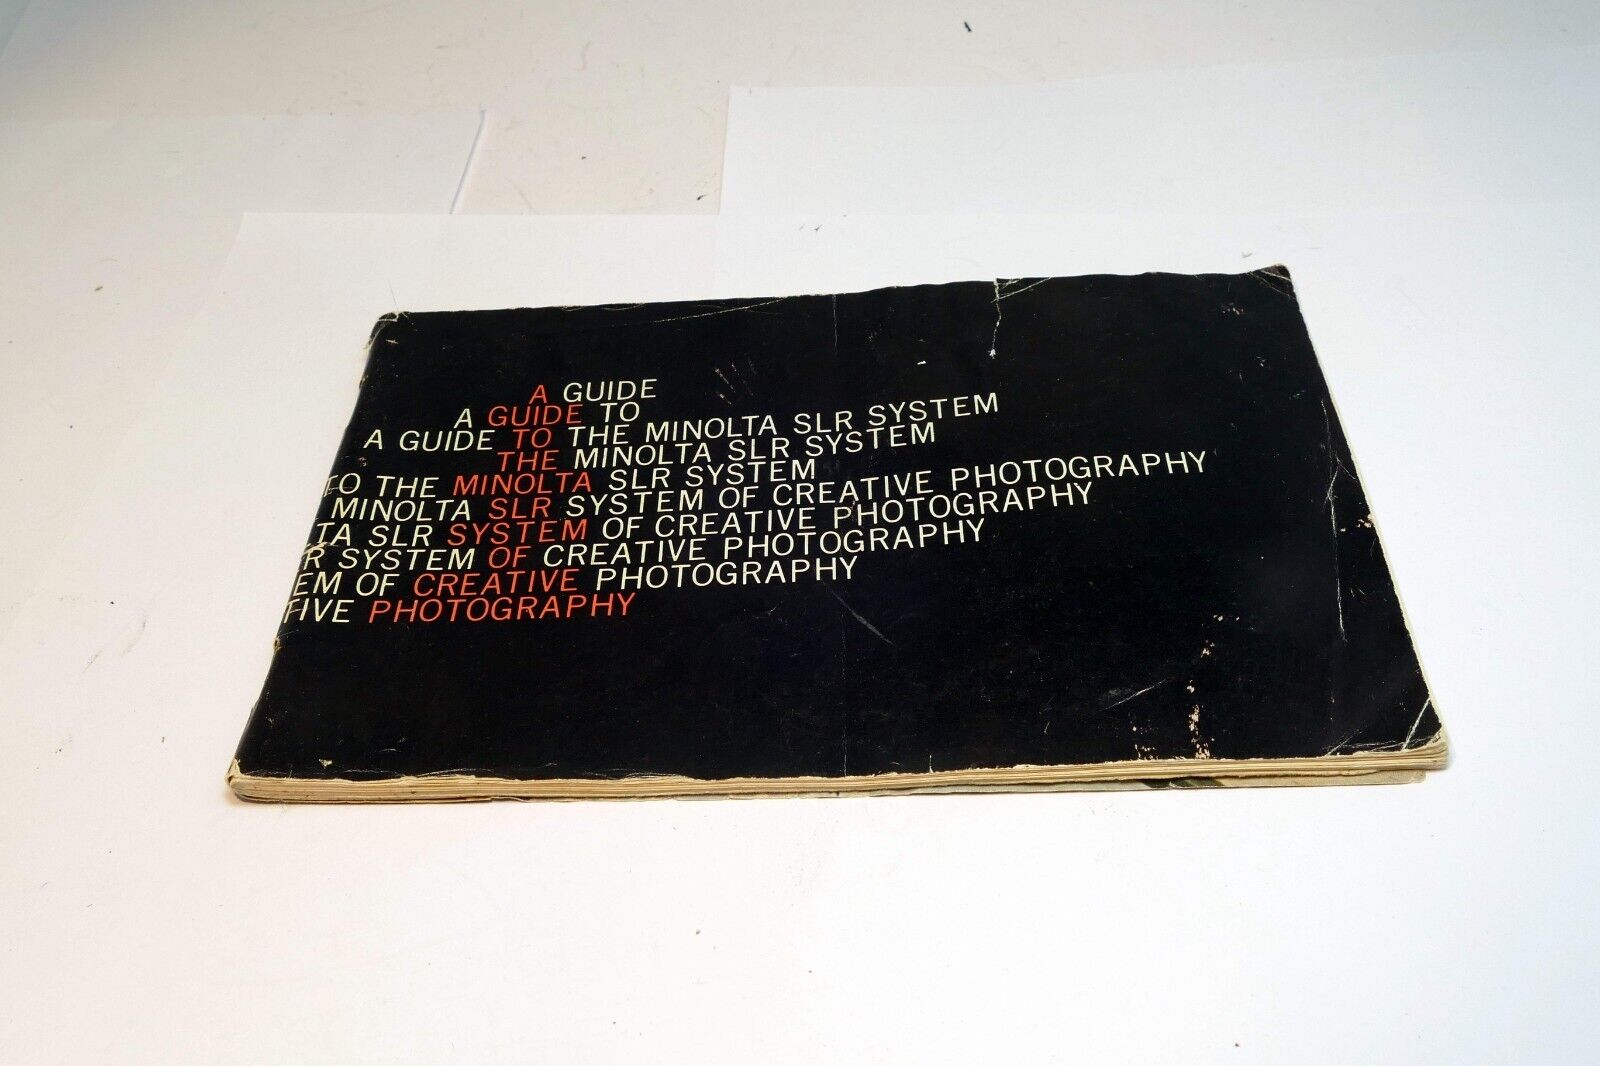 A GUIDE
A GUIDE TO
A GUIDE TO THE MINOLTA SLR SYSTEM
THE MINOLTA SLR SYSTEM
TO THE MINOLTA SLR SYSTEM
MINOLTA SLR SYSTEM OF CREATIVE PHOTOGRAPHY
TA SLR SYSTEM OF CREATIVE PHOTOGRAPHY
R SYSTEM OF CREATIVE PHOTOGRAPHY
EM OF CREATIVE PHOTOGRAPHY
TIVE PHOTOGRAPHY